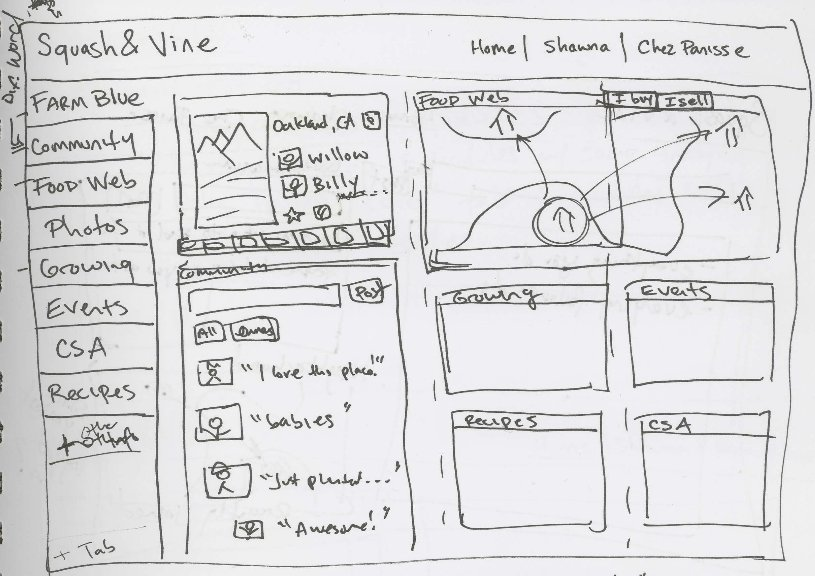 Squash & Vine
Home | Shawna | Chez Panisse
FARM Blue
Community
Food Web
Photos
Growing
Events
CSA
Recipes
+ Tab
Oakland, CA
Willow
Billy
Community
Post
All
"I love this place!"
"babies"
"Just planted...."
"Awesome!"
Food Web
I buy
I sell
Growing
Events
Recipes
CSA